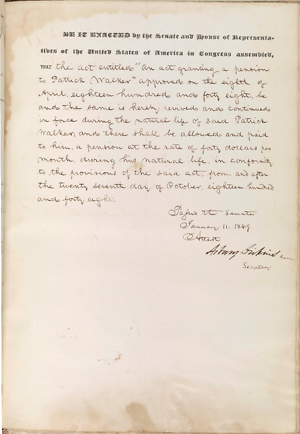 BE IT ENACTED by the Senate and House of Representa-
tives of the United States of America in Congress assembled,
THAT the act entitled "An act granting a pension
to Patrick Walker" approved on the eighth of
April, eighteen hundred and forty eight, be
and the same is hereby revived and continued
in force during the natural life of said Patrick
Walker; and there shall be allowed and paid
to him, a pension at the rate of forty dollars per
month during his natural life, in conformity
to the provisions of the said act, from and after
the twenty seventh day of October, eighteen hundred
and forty eight.
Passed the Senate
January 11. 1849
Attest
Asbury Dickins
Secretary